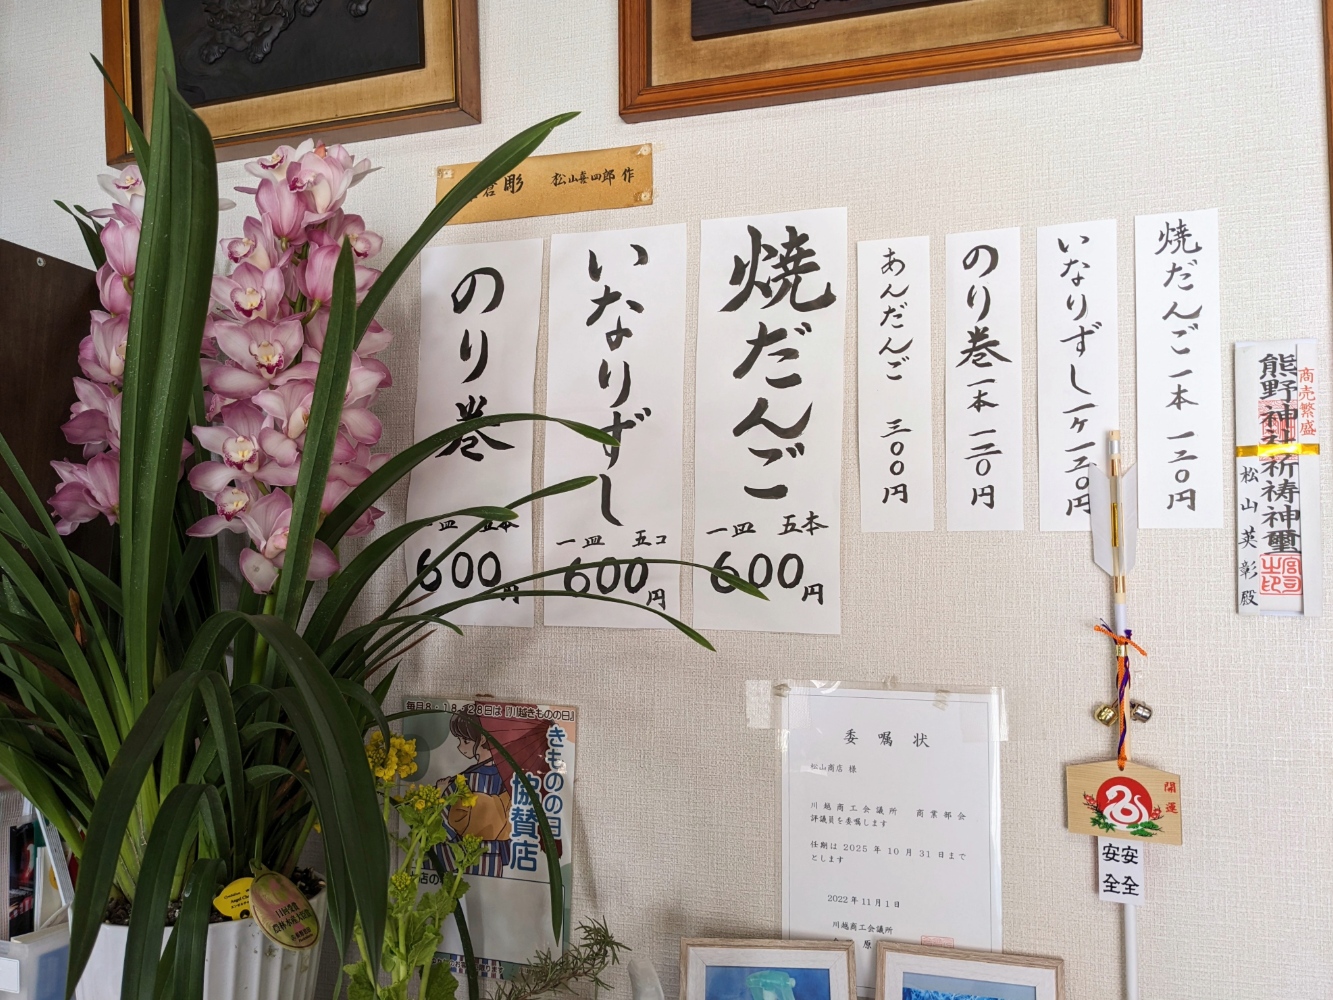 倉彫 松山喜四郎 作
焼だんご一本 一二〇円
いなりずし一ケ一二〇円
のり巻一本 一二〇円
あんだんご 三〇〇円
焼だんご
一皿 五本
600円
いなりずし
一皿 五コ
600円
のり巻
一皿 五本
600円
商売繁盛
熊野神社祈祷神璽
松山英彰殿
開運
安全
安全
委嘱状
松山商店 様
川越商工会議所 商業部会
評議員を委嘱します
任期は 2025 年 10 月 31 日まで
とします
2022年11月1日
川越商工会議所
原
毎月8・18・28日は『川越きものの日』
きものの日
協賛店
店の
農林水産大臣賞